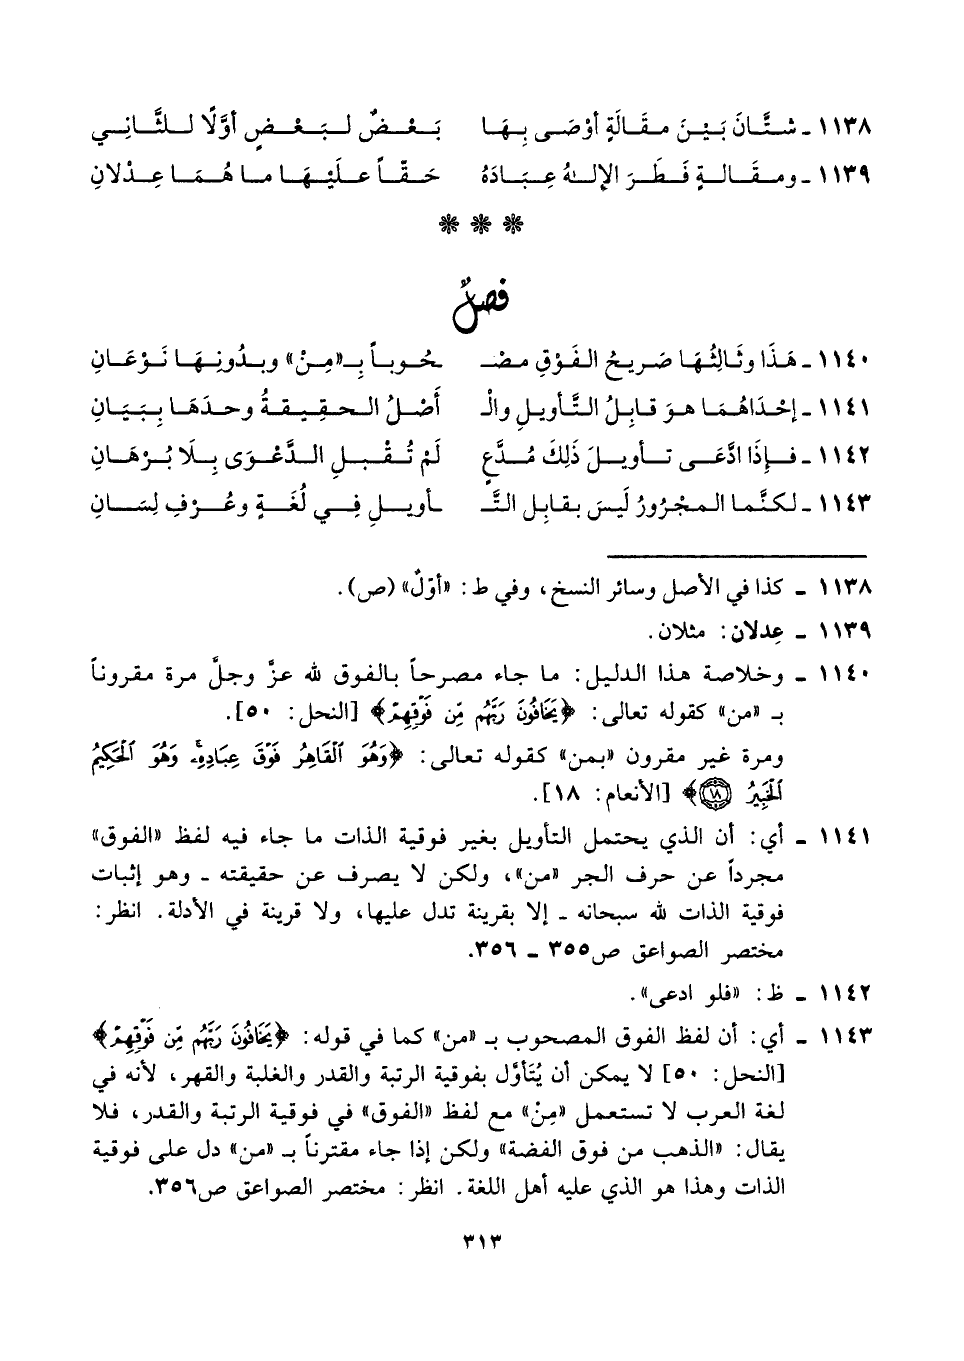 ١١٣٨ ـ شتَّانَ بَيْنَ مقَالَةٍ أوْصَى بِهَا بَعْضٌ لبَعْضٍ أوَّلًا للثَّانِي
١١٣٩ ـ ومقَالةٍ فَطَرَ الإلـٰهُ عِبَادَهُ حَقّاً عَلَيْهَا ما هُمَا عِدْلَانِ
❋ ❋ ❋
فصلٌ
١١٤٠ ـ هَذَا وثَالِثُهَا صَريحُ الفَوْقِ مصْـ ـحُوباً بِـ«مِنْ» وبدُونِهَا نَوْعَانِ
١١٤١ ـ إحْدَاهُمَا هوَ قابِلُ التَّأويلِ والْـ أَصْلُ الحقِيقةُ وحدَهَا بِبَيَانِ
١١٤٢ ـ فإذَا ادَّعَى تأويلَ ذَلِكَ مُدَّعٍ لَمْ تُقْبلِ الدَّعْوَى بِلَا بُرْهَانِ
١١٤٣ ـ لكنَّما المجْرُورُ لَيسَ بقَابِل التَّـ ـأويلِ فِي لُغَةٍ وعُرْفِ لِسَانِ
١١٣٨ ـ كذا في الأصل وسائر النسخ، وفي ط: «أوّلٌ» (ص).
١١٣٩ ـ عِدلان: مثلان.
١١٤٠ ـ وخلاصة هذا الدليل: ما جاء مصرحاً بالفوق لله عزَّ وجلَّ مرة مقروناً
بـ «من» كقوله تعالى: ﴿يَخَافُونَ رَبَّهُم مِّن فَوْقِهِمْ﴾ [النحل: ٥٠].
ومرة غير مقرون «بمن» كقوله تعالى: ﴿وَهُوَ ٱلْقَاهِرُ فَوْقَ عِبَادِهِۦۚ وَهُوَ ٱلْحَكِيمُ
ٱلْخَبِيرُ ١٨﴾ [الأنعام: ١٨].
١١٤١ ـ أي: أن الذي يحتمل التأويل بغير فوقية الذات ما جاء فيه لفظ «الفوق»
مجرداً عن حرف الجر «من»، ولكن لا يصرف عن حقيقته ـ وهو إثبات
فوقية الذات لله سبحانه ـ إلا بقرينة تدل عليها، ولا قرينة في الأدلة. انظر:
مختصر الصواعق ص٣٥٥ ـ ٣٥٦.
١١٤٢ ـ ظ: «فلو ادعى».
١١٤٣ ـ أي: أن لفظ الفوق المصحوب بـ «من» كما في قوله: ﴿يَخَافُونَ رَبَّهُم مِّن فَوْقِهِمْ﴾
[النحل: ٥٠] لا يمكن أن يُتَأوَّل بفوقية الرتبة والقدر والغلبة والقهر، لأنه في
لغة العرب لا تستعمل «مِنْ» مع لفظ «الفوق» في فوقية الرتبة والقدر، فلا
يقال: «الذهب من فوق الفضة» ولكن إذا جاء مقترناً بـ «من» دل على فوقية
الذات وهذا هو الذي عليه أهل اللغة. انظر: مختصر الصواعق ص٣٥٦.
٣١٣